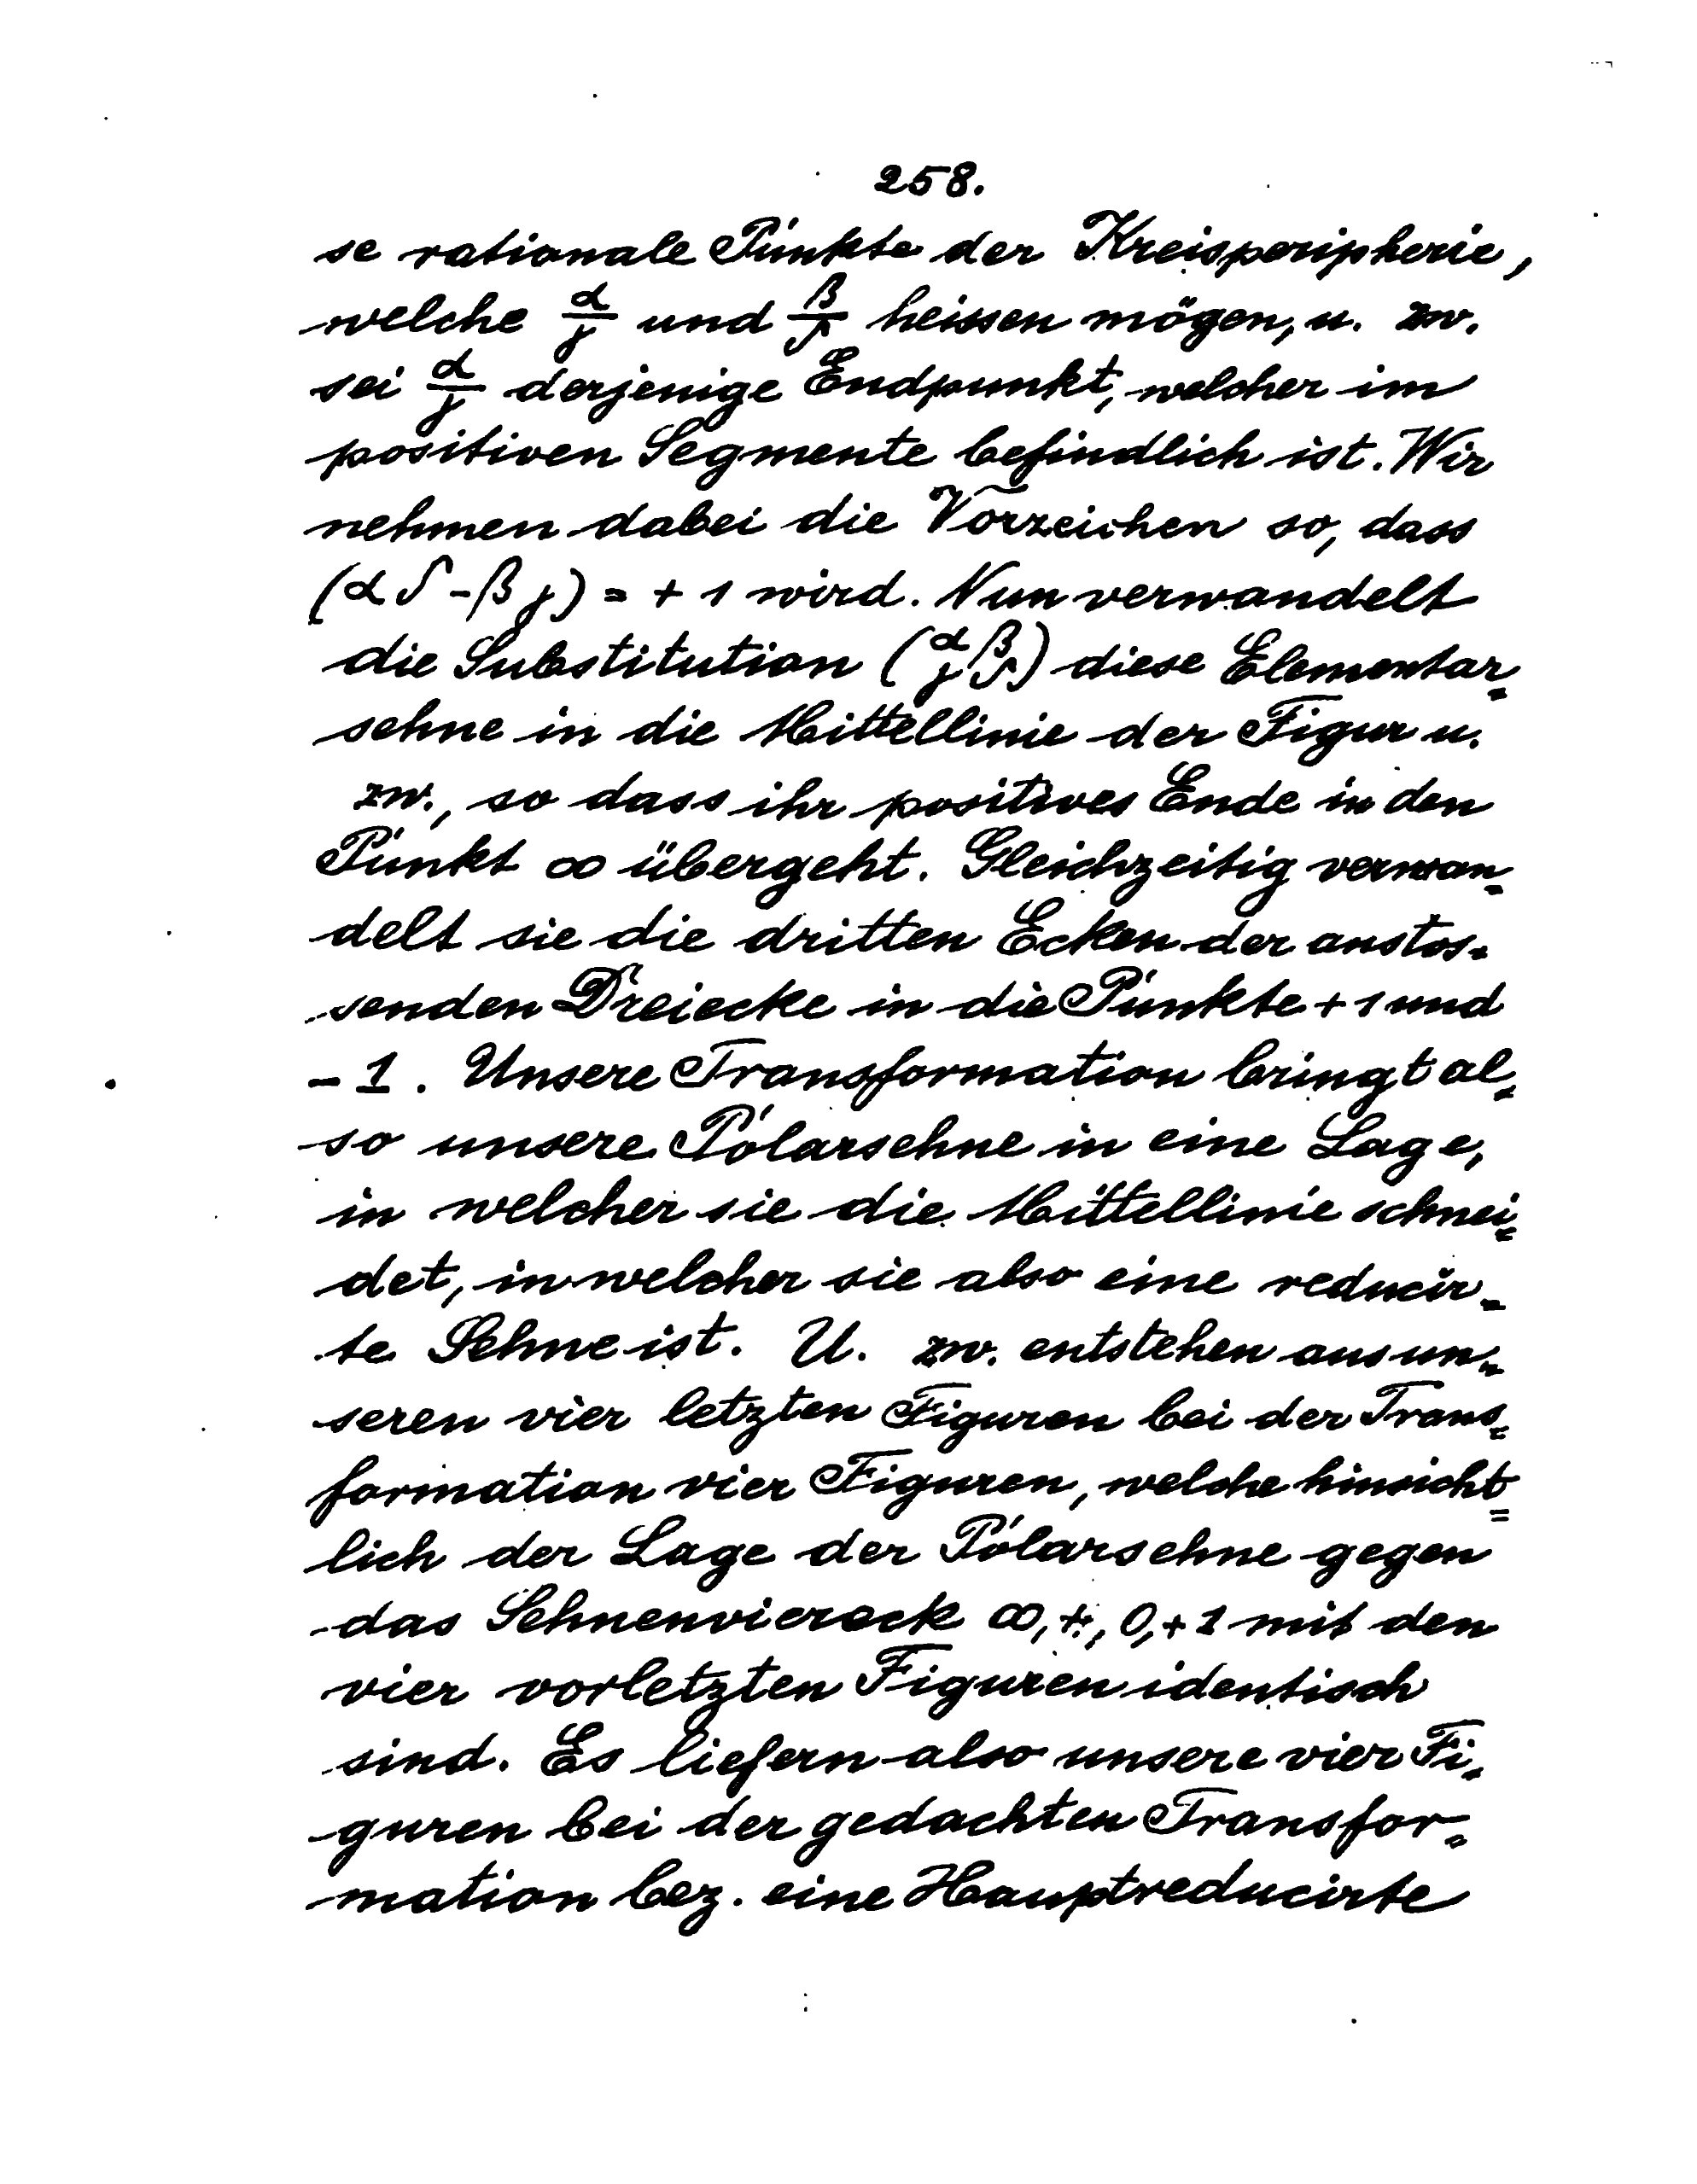 258.
se rationale Punkte der Kreisperipherie,
welche α/γ und β/δ heissen mögen, u. zw.
sei α/γ derjenige Endpunkt, welcher im
positiven Segmente befindlich ist. Wir
nehmen dabei die Vorzeichen so, dass
(αδ-βγ) = + 1 wird. Nun verwandelt
die Substitution (α β γ δ) diese Elementar-
sehne in die Mittellinie der Figur u.
zw., so dass ihr positives Ende in den
Punkt ∞ übergeht. Gleichzeitig verwan-
delt sie die dritten Ecken der anstos-
senden Dreiecke in die Punkte + 1 und
- 1. Unsere Transformation bringt al-
so unsere Polarsehne in eine Lage,
in welcher sie die Mittellinie schnei-
det, in welcher sie also eine reducir-
te Sehne ist. U. zw. entstehen aus un-
seren vier letzten Figuren bei der Trans-
formation vier Figuren, welche hinsicht-
lich der Lage der Polarsehne gegen
das Sehnenviereck ∞, 0, + 1 mit den
vier vorletzten Figuren identisch
sind. Es liefern also unsere vier Fi-
guren bei der gedachten Transfor-
mation bez. eine Hauptreducirte